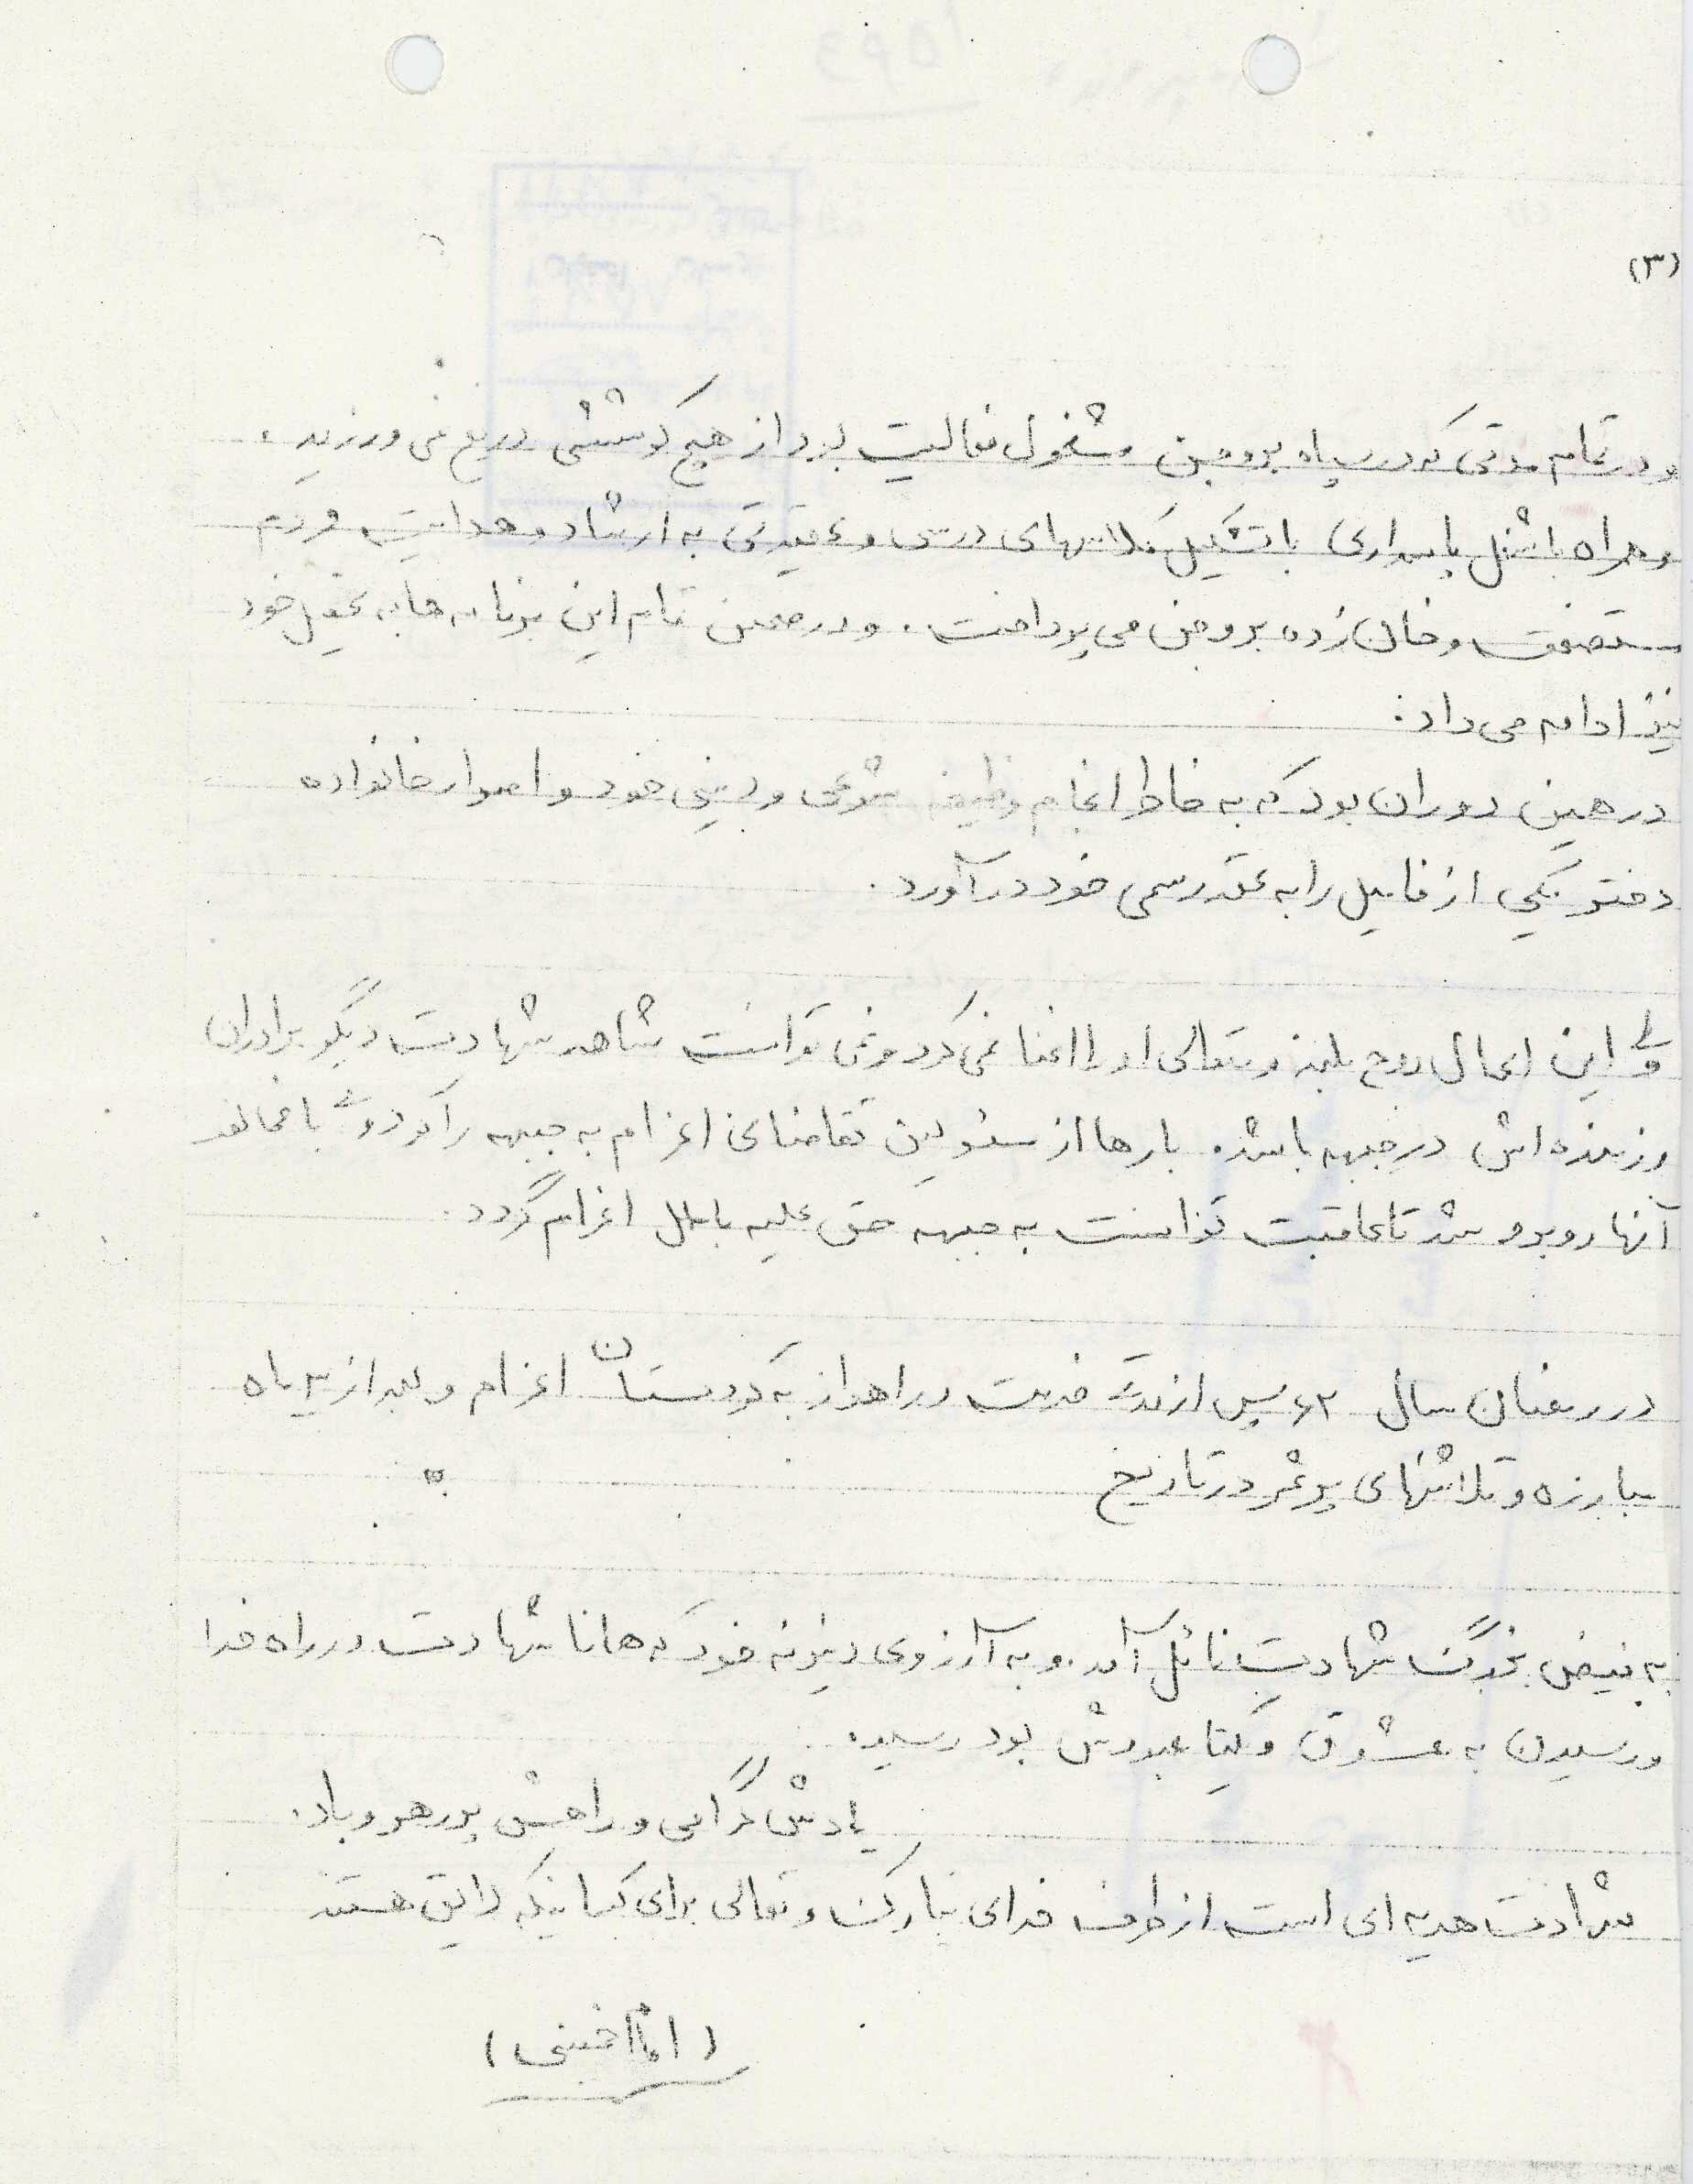 (۳)
و در تمام مدتی که در سپاه بروجن مشغول فعالیت بود از هیچ کوششی دریغ نمی ورزید.
و همراه با شغل پاسداری با تشکیل کلاسهای درسی و عقیدتی به ارشاد و هدایت مردم
مستضعف و خان زده بروجن می پرداخت. و در ضمن تمام این برنامه ها به تحصیل خود
نیز ادامه می داد:
در همین دوران بود که به خاطر انجام وظیفه شرعی و دینی خود و اصرار خانواده
دختر یکی از فامیل را به عقد رسمی خود درآورد.
ولی این اعمال روح بلند و متعالی او را اغنا نمی کرد و نمی توانست شاهد شهادت دیگر برادران
رزمنده اش در جبهه باشد. بارها از مسئولین تقاضای اعزام به جبهه را کرد ولی با مخالفت
آنها روبرو شد تا عاقبت توانست به جبهه حق علیه باطل اعزام گردد.
در رمضان سال ۶۲ پس از مدتی خدمت در اهواز به کردستان اعزام و بعد از سه ماه
مبارزه و تلاشهای پرثمر در تاریخ
به فیض بزرگ شهادت نائل آمد. و به آرزوی دیرینه خود که همانا شهادت در راه خدا
و رسیدن به معشوق و یکتا معبودش بود رسید.
یادش گرامی و راهش پر رهرو باد.
شهادت هدیه ای است از طرف خدای تبارک و تعالی برای کسانیکه لایق هستند
(امام خمینی)